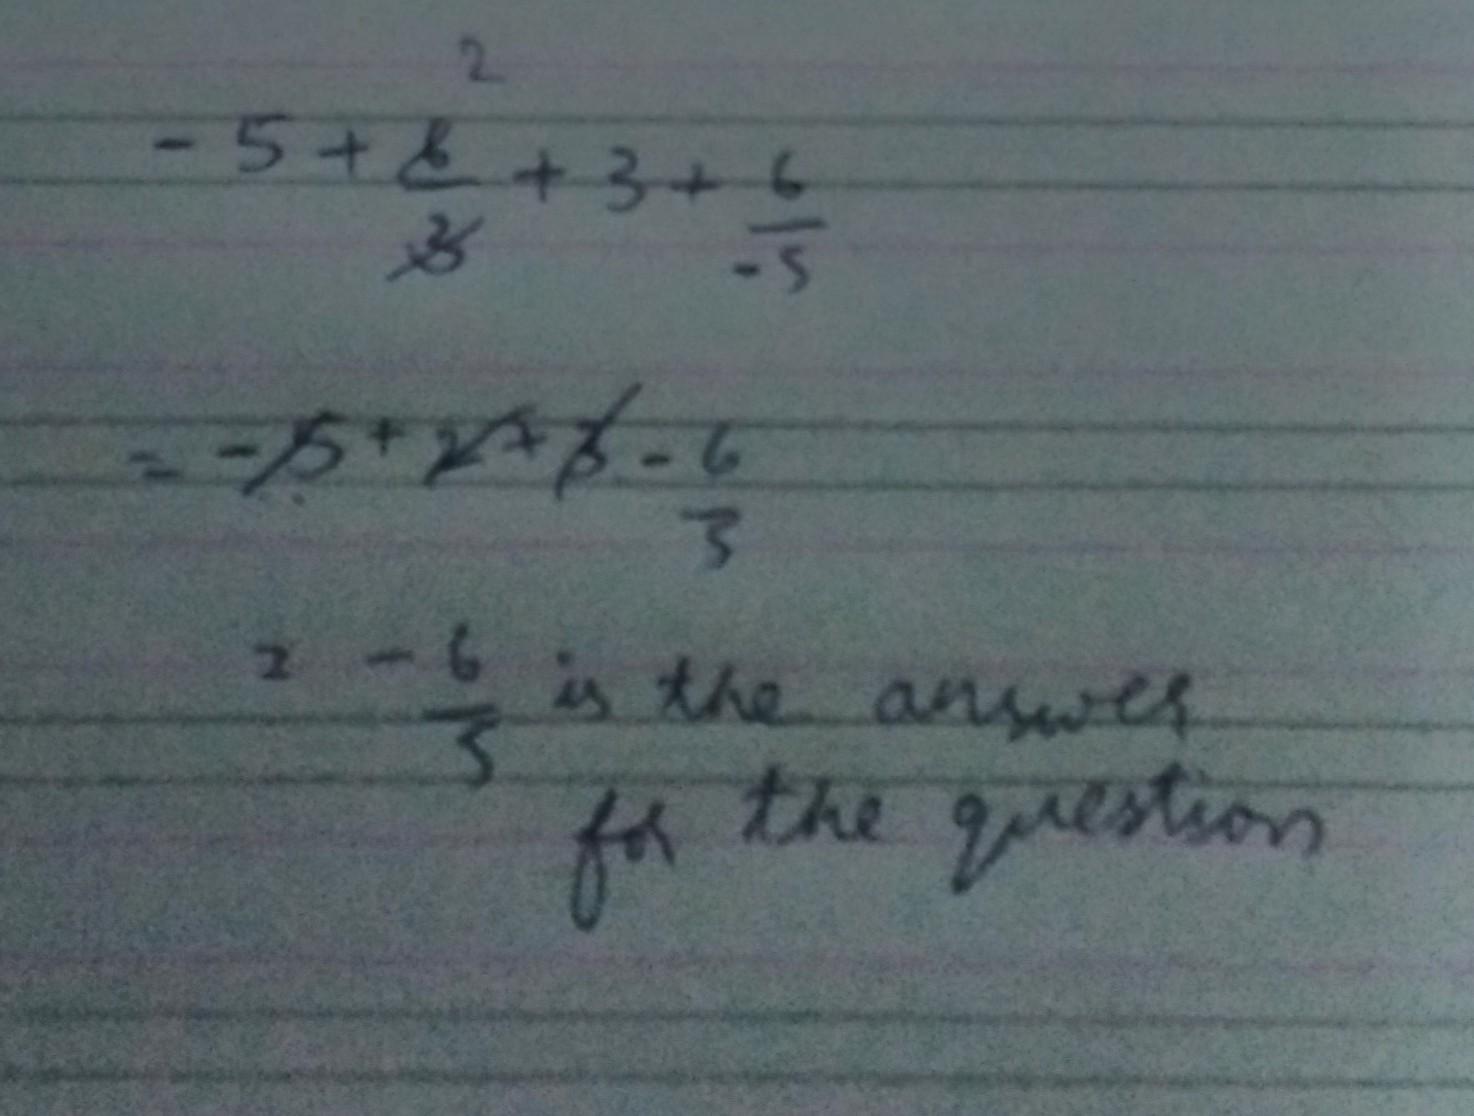 2
- 5 + 6/3 + 3 + 6/-5
= - 5 + 2 + 3 - 6/5
= - 6/5 is the answer
for the question